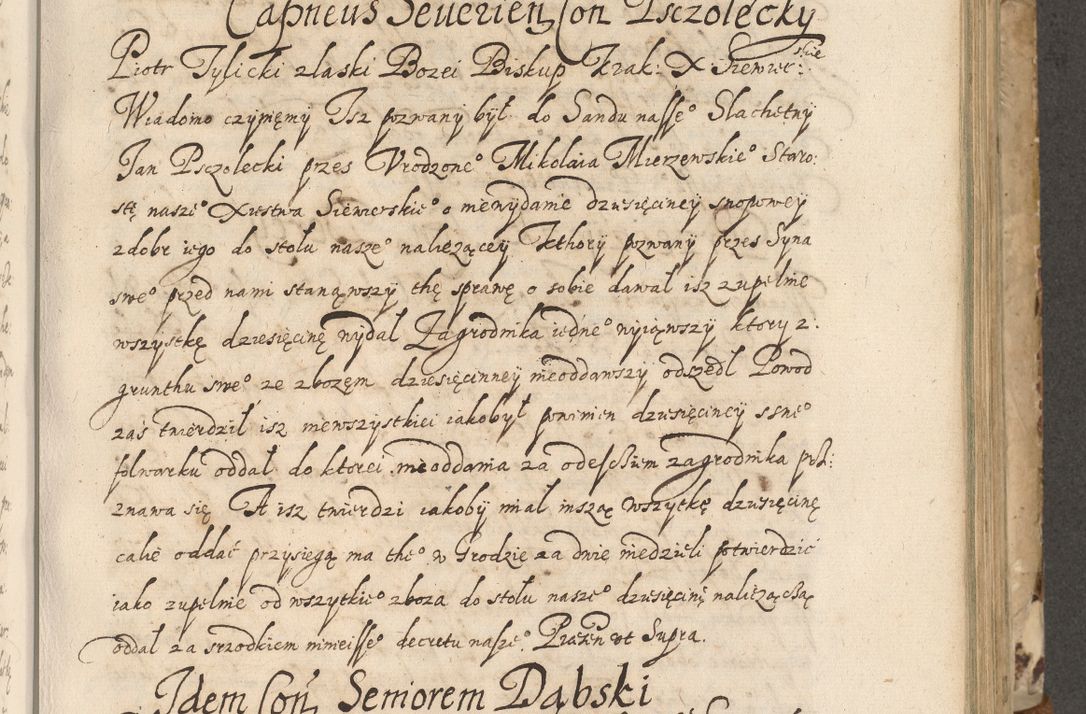 Capneus Seuerien Con Psczolecky
Piotr Tylicki z laski Bozei Biskup Krak: X Siewier:skie
Wiadomo czyniemy Isz pozwany był do Sandu nasse° Slachetny
Jan Psczolecki przes Vrodzone° Mikolaia Mierzewskie° Staro:
stę nasze° Xiestwa Siewierskie° o niewydanie dziesięciney snopowey
z dobr iego do stolu nasze° nalezącey Kthory pozwany przes Syna
swe° przed nami stanąwszy thę sprawę o sobie dawal isz zupelnie
wszystkę dziesięcinę wydal Zagrodnika iedne° wyiąwszy ktory z
grunthu swe° ze zbozem dziesięcinney nieoddawszy odszedl Powod
zaś twierdził isz niewszystkiei iakobył powinien dziesięciney ssne°
folwarku oddal do ktorei nieoddania za odeściem zagrodnika prz:
znawa się A isz twierdzi iakoby mial inszą wszytkę dziesięcinę
calie oddać przysięgą ma the° w Grodzie za dwie niedzieli potwierdzić
iako zupelnie od wszytkie° zboza do stolu nasze° dziesięcinę nalezączą
oddal za srzodkiem ninieisse° decretu nasze°. Prazen vt Supra.
Idem Con Seniorem Dąbski